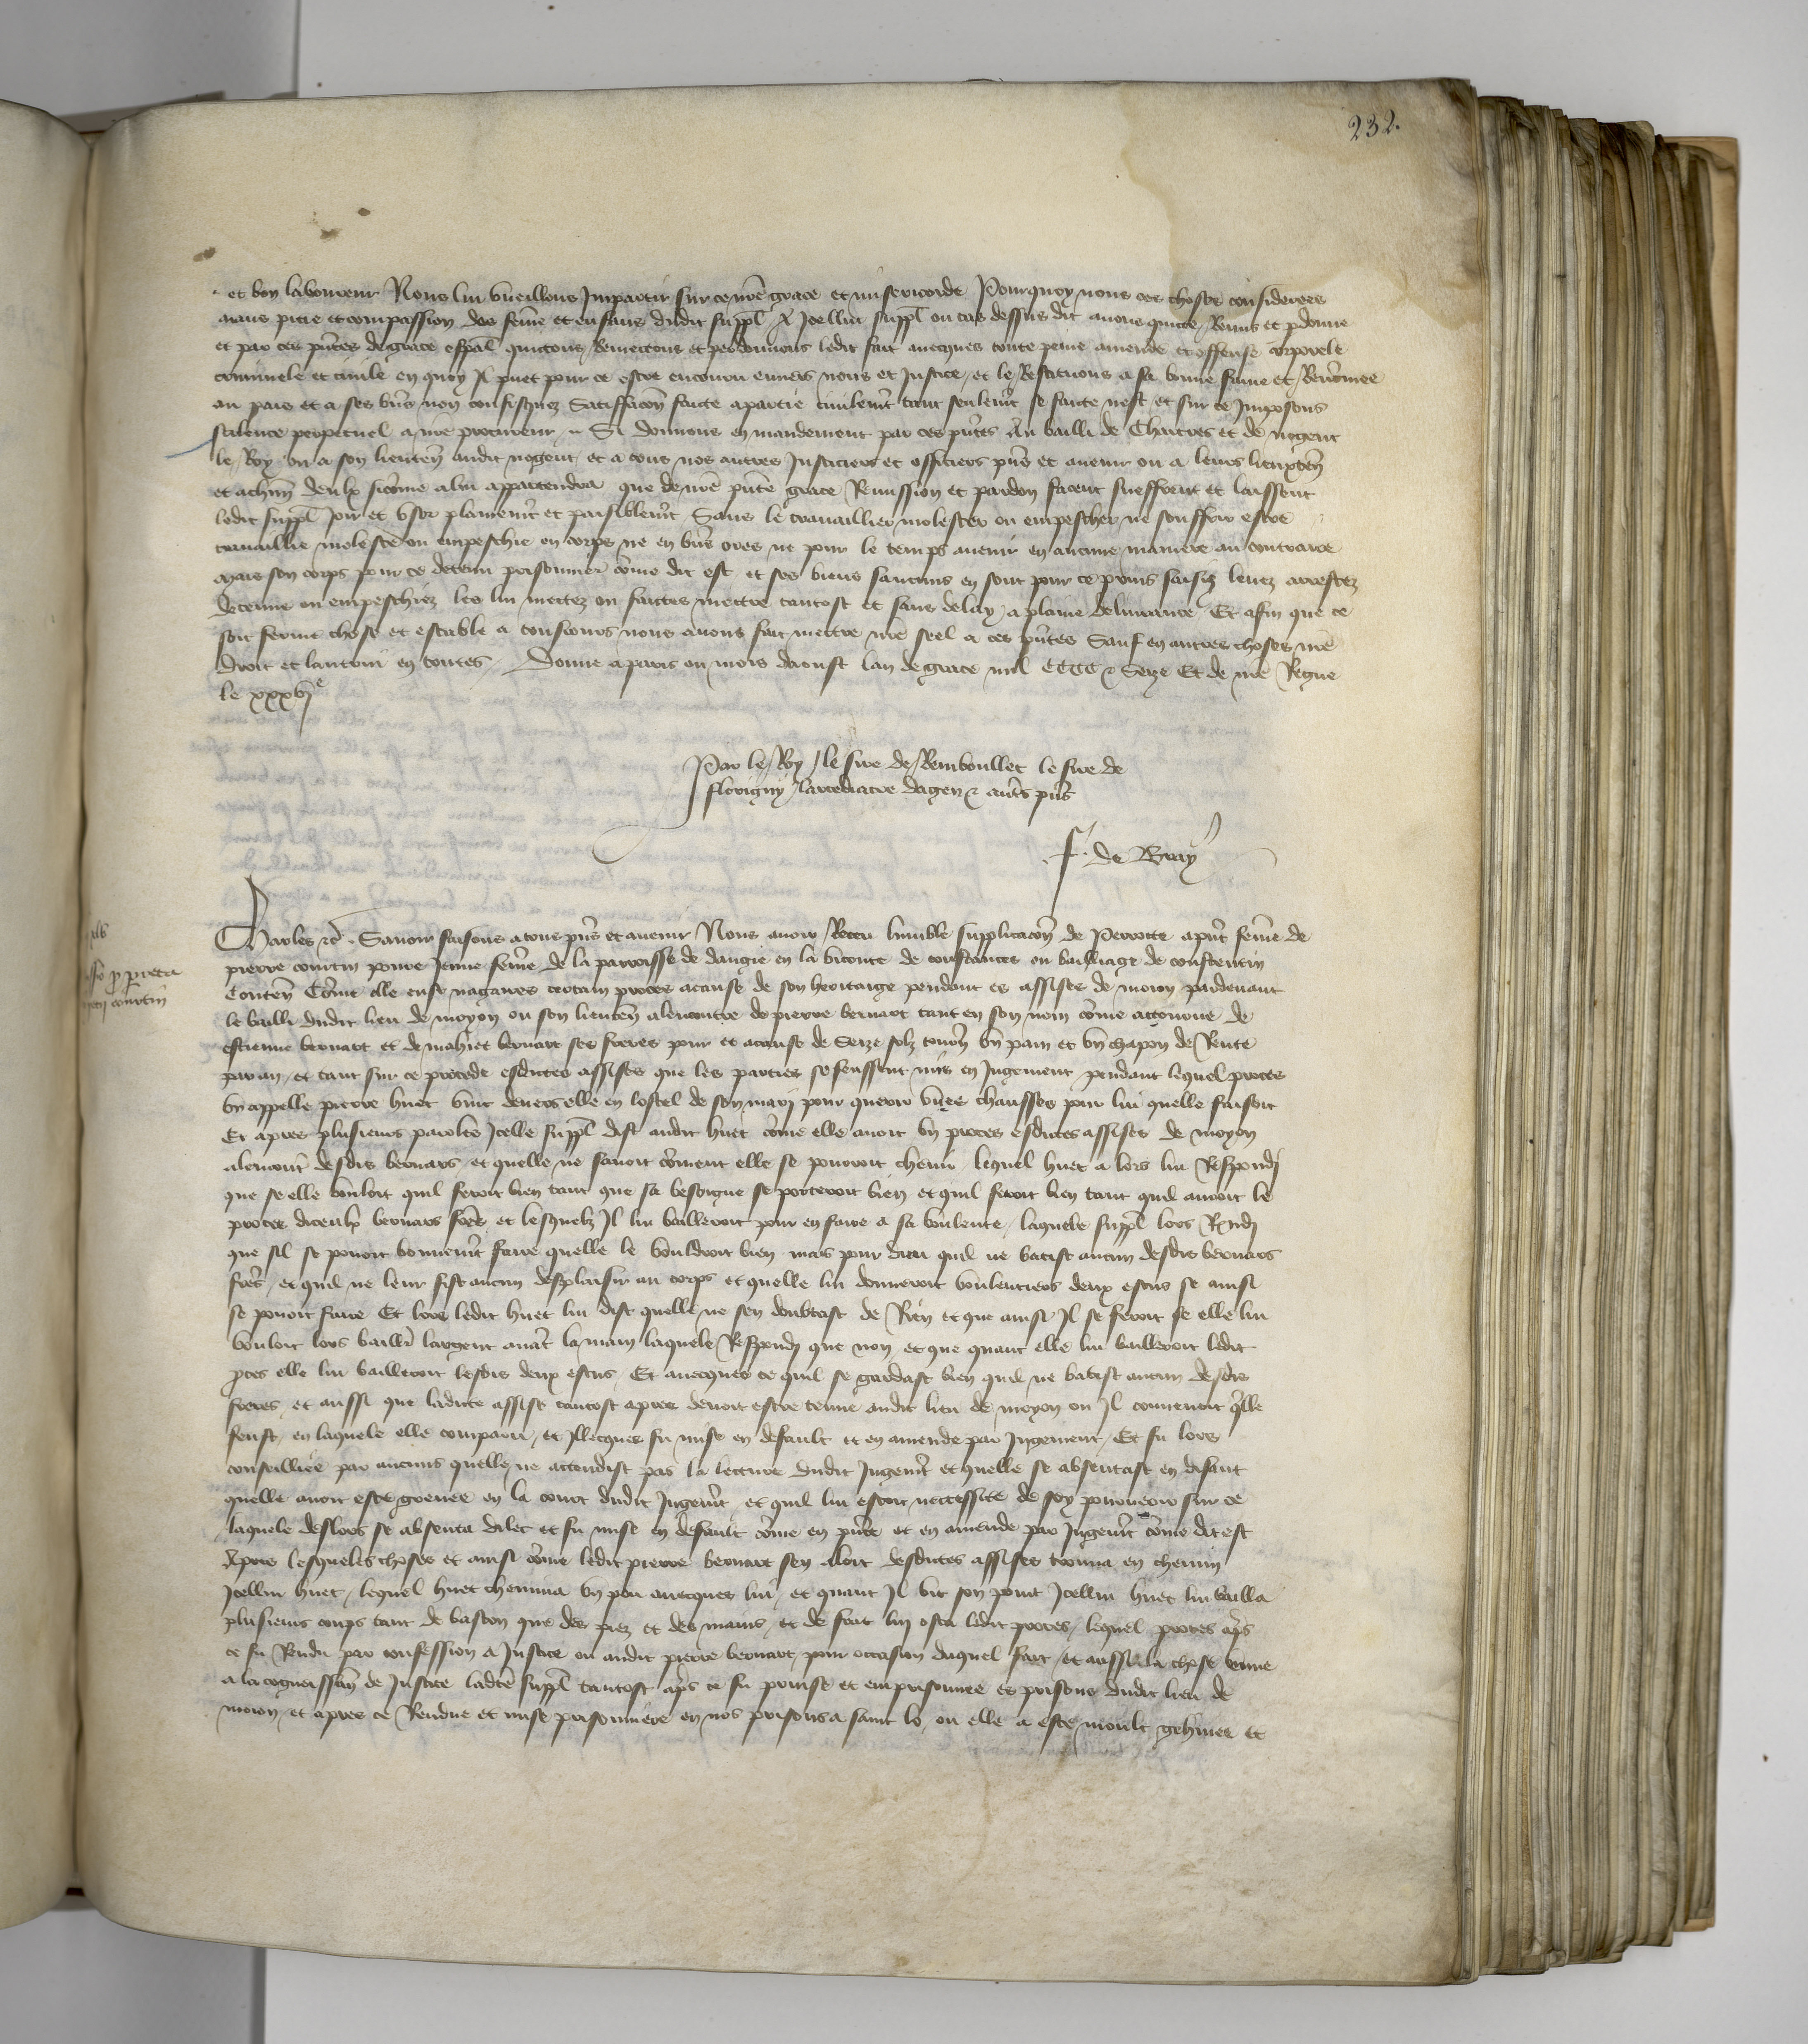 232.
et bon laboureur Nous lui vueillons Impartir sur ce nrē grace et misericorde Pourquoy nous ces choses considerees
aians pitie et compassion des feme et enfans dudit suppl A Icellui suppl ou cas dessus dit auons quicte Remis et pdonne
et par ces pntes de grace espal quictons Remettons et perdonnons ledit fait auecques toute peine amende et offense corporele
criminele et ciuile en quoy Il puet pour ce estre encouru enuers nous et Justice et le Restituons a sa bonne fame et Renomee
au pais et a ses bns non confisquez Satiffacon faicte a partie ciuilemt tant seulemt se faicte nest et sur ce Imposons
scilence perpetuel a nre procureur Si donnons en mandement par ces pntes Au bailli de Chartres et de nogent
le Roy ou a son lieuten audit nogent et a tous nos autres Justiciers et officiers pns et auenir ou a leurs lieuxten
et a chun deulx sicome a lui appartendra que de nre pnte grace Remission et pardon facent sueffrent et laissent
ledit suppl Joir et vser plainemt et paisiblemt Sans le trauaillier molester ou empescher ne souffrir estre
trauaillie moleste ou empeschie en corps ne en bns ores ne pour le temps auenir en aucune maniere au contraire
mais son corps pour ce detenu prisonnier come dit est et ses biens saucuns en sont pour ce prins saisiz leuez arrestez
detenus ou empeschiez les lui mettez ou faictes mettre tantost et sans delay a plaine deliurance Et afin que ce
soit ferme chose et estable a tousiours nous auons fait mettre nre seel a ces pntes Sauf en autres choses nre
droit et lautrui en toutes Donne a paris ou mois daoust lan de grace mil CCCC & Seze Et de nre Regne
le xxxvj e
Par le Roy le sire de Rembouillet le sire de
florigny larcediacre dagen & autrs pns
F. de Bray
Charles &c Sauoir faisons a tous pns et auenir Nous auoir Receu lumble supplicacon de Perrote apnt feme de
pierre courtin poure Jeune feme de la parroisse de dangie en la viconte de coustances ou bailliage de coustentin
Conten Come elle eust nagaires certain proces a cause de son heritaige pendant es assises de moion pardeuant
le bailli dudit lieu de moyon ou son lieuten alencontre de pierre bernart tant en son nom come attourne de
estienne bernart et de mahiet bernart ses freres pour et a cause de Seze solz tourn vn pain et vn chapon de Rente
par an et tant sur ce procede esdictes assises que les parties se feussent mis en Jugement pendant lequel proces
vn appelle pierre huet vint deuers elle en lostel de son mary pour querir vnes chausses pour lui quelle faisoit
Et apres plusieurs paroles Icelle suppl dist audit huet come elle auoit vn proces esdictes assises de moyon
alencont desdis bernars et quelle ne sauoit coment elle se pourroit cheuir lequel huet a lors lui Respondj
que se elle vouloit quil feroit bien tant que sa besoigne se porteroit bien et quil feroit bien tant quil auroit le
proces diceulx bernars freres et lesquelz Il lui bailleroit pour en faire a sa voulente laquele suppl lors Rndj
que sil se pouoit bonnemt faire quelle le vouldroit bien mais pour dieu quil ne batist aucun desdis bernars
freres et quil ne leur fist aucun desplaisir au corps et quelle lui donneroit voulentiers deux escus se ainsi
se pouoit faire Et lors ledit huet lui dist quelle ne sen doubtast de Rien et que ainsi Il se feroit se elle lui
vouloit lors baillr largent auant la main laquele Respondj que non et que quant elle lui bailleroit ledit
pces elle lui bailleroit lesdis deux escus Et auecques ce quil se gardast bien quil ne batist aucun desdis
freres et aussi que ladicte assise tantost apres deuoit estre tenue audit lieu de moyon ou Il conuenoit qlle
feust en laquele elle comparu et Illecques fu mise en default et en amende par Jugement Et fu lors
conseilliee par aucuns quelle ne attendist pas la lecture dudit Jugemt et quelle se absentast en disant
quelle auoit este greuee en la court dudit Jugemt et quil lui estoit necessite de soy pourueoir sur ce
laquele deslors se absenta dilec et fu mise en default come en pnte et en amende par Jugemt come dit est
Apres lesqueles choses et ainsi come ledit pierre bernart sen aloit desdictes assises trouua en chemin
Icellui huet lequel huet chemina vn pou auecques lui et quant Il vit son point Icellui huet lui bailla
plusieurs coups tant de baston que des piez et des mains et de fait lui osta ledit proces lequel proces aps
ce fu Rendu par confession a Justice ou audit pierre bernart pour occasion duquel fait et aussi la chose venue
a la cognoissan de Justice ladte suppl tantost aps ce fu prinse et emprisonnee es prisons dudit lieu de
moion et apres ce Rendue et mise prisonniere en nos prisons a saint lo ou elle a este moult gehinee et
courtin